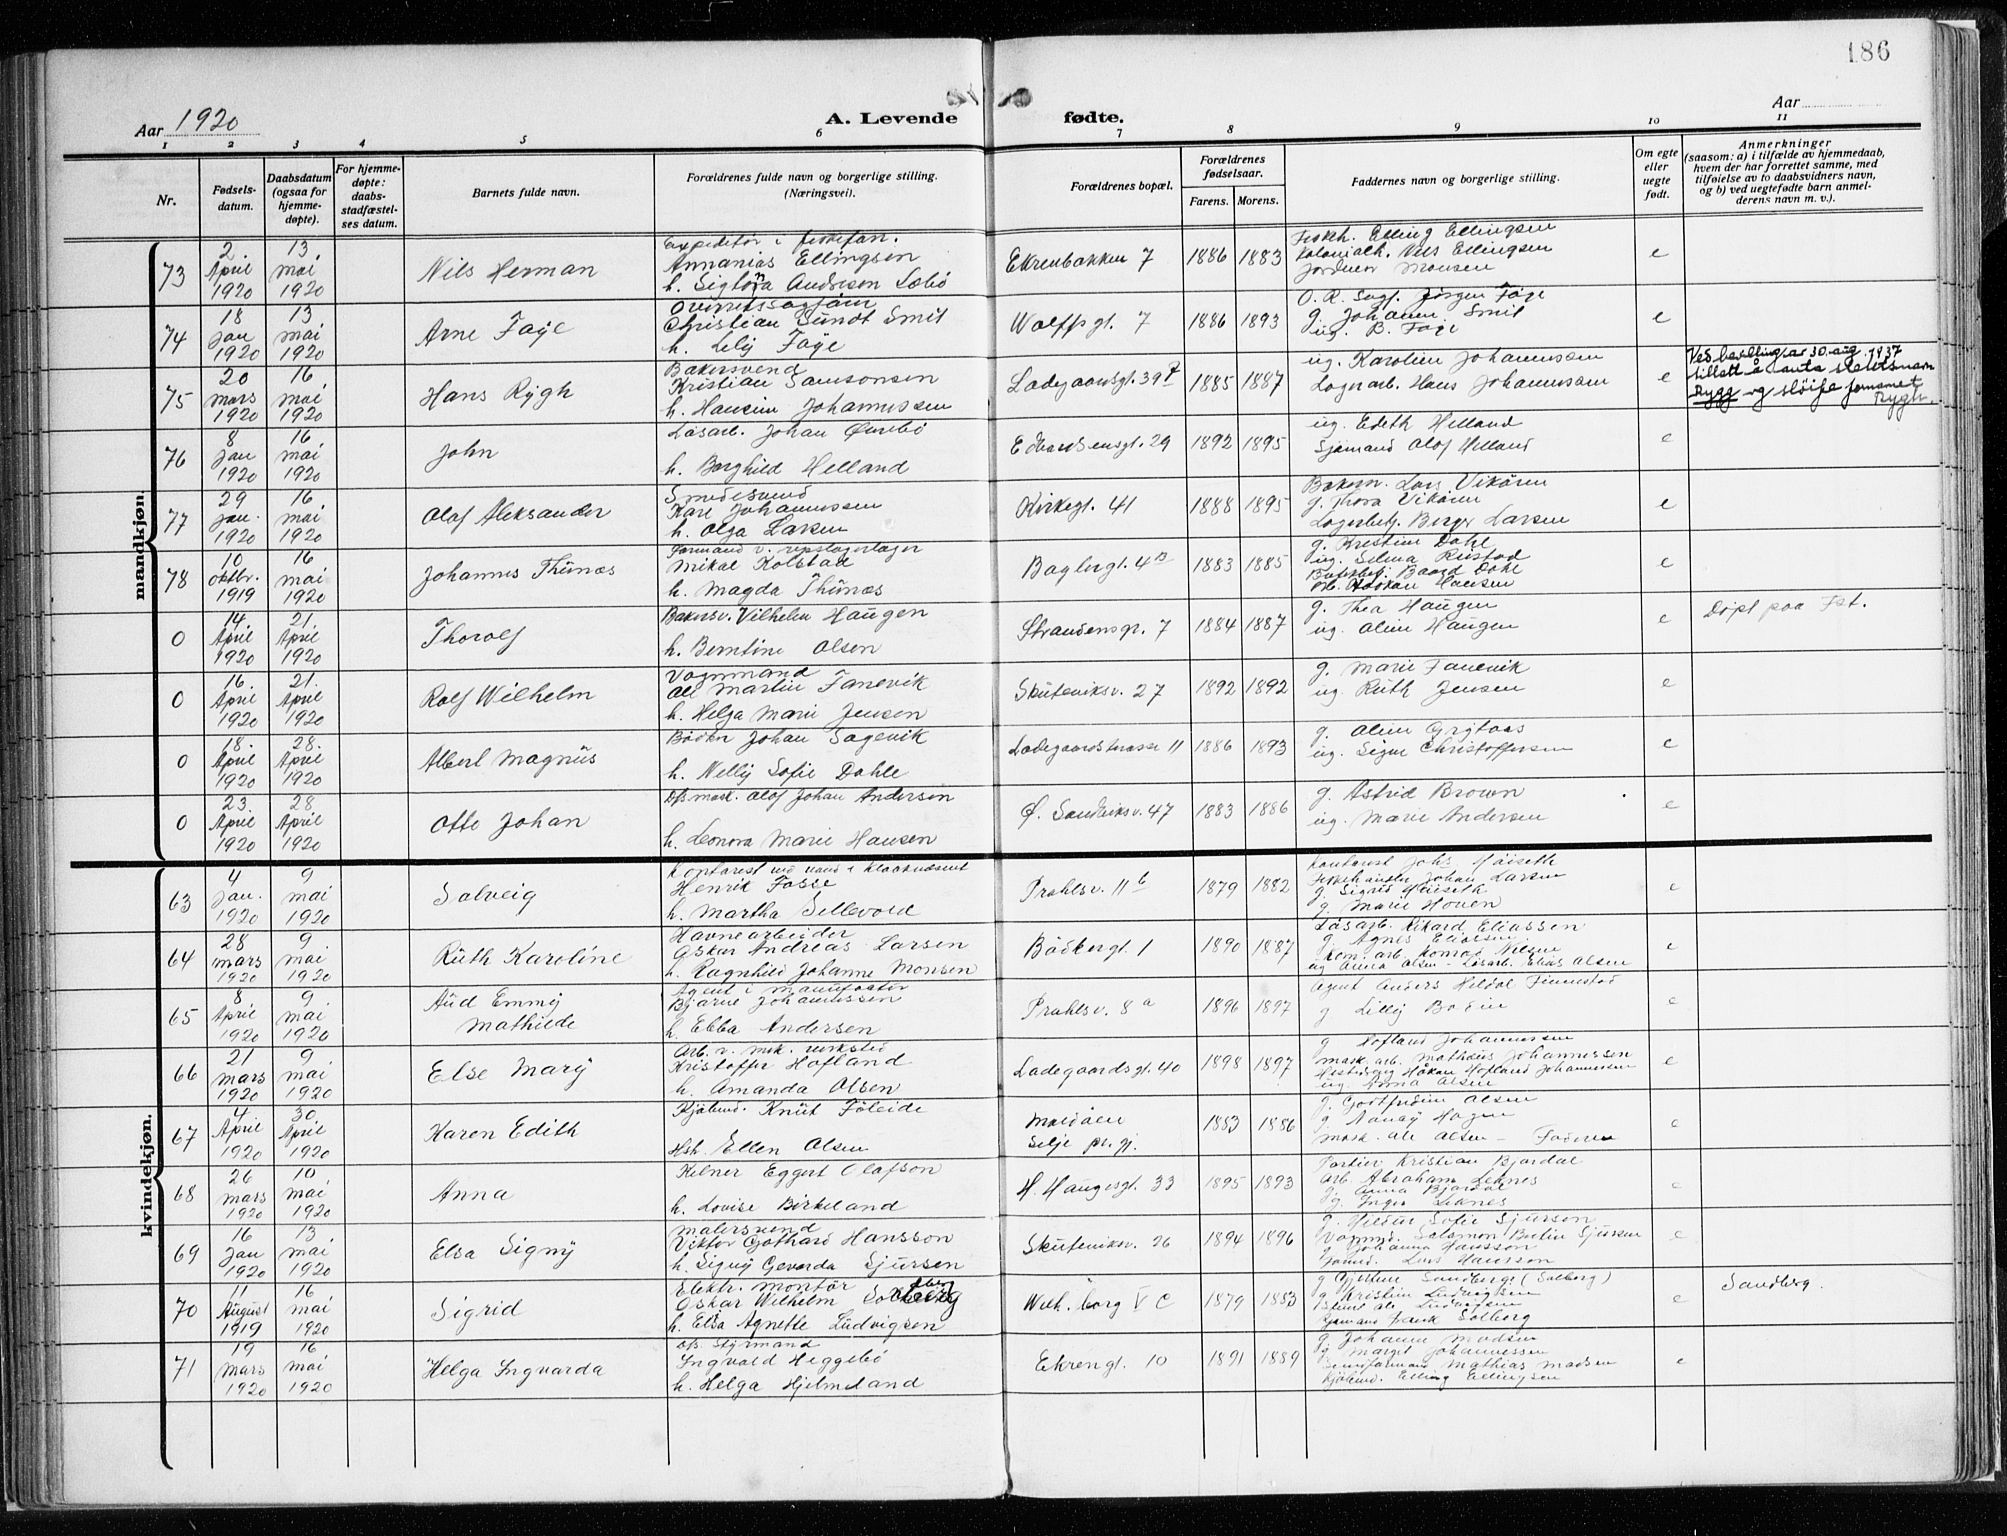 186
Aar 1920
A. Levende fødte.
Aar
1 2 3 4 5 6 7 8 9 10 11
Nr.
Fødsels-datum.
Daabsdatum (ogsaa for hjemme-døpte).
For hjemme-døpte: daabs-stadfæstel-ses datum.
Barnets fulde navn.
Forældrenes fulde navn og borgerlige stilling. (Næringsvei).
Forældrenes bopæl.
Forældrenes fødselsaar.
Farens. Morens.
Faddernes navn og borgerlige stilling.
Om egte eller uegte født.
Anmerkninger (saasom: a) i tilfælde av hjemmedaab, hvem der har forrettet samme, med tilføielse av to daabsvidners navn, og b) ved uegtefødte barn anmel-derens navn m. v.).
mandkjøn.
73
2 April 1920
13 mai 1920
Nils Herman
Annanias Ellingsen
Ekrenbakken 7
1886 1883
Elling Ellingsen
Kolonialh. Nils Ellingsen
Jordmor Monsen
e
74
18 Jan 1920
13 mai 1920
Arne Faye
Overretssagføer
Christian Sundt Smit
h. Lily Faye
Wolffsgt. 7
1886 1893
O. R. Sagf. Jørgen Faye
g. Johanne Smit
ug. B. Faye
e
75
20 mars 1920
16 mai 1920
Hans Rygh
Bakersvend
Kristian Samsonsen
h. Hansine Johannessen
Ladegaardsgt. 39
1885 1887
ug. Karoline Johannessen
Lagerarb. Hans Johannessen
e
Ved bevilling av 30 aug. 1937
tillatt å anta slektsnavn
Rygg og sløife fornavnet
Rygh.
76
8 Jan 1920
16 mai 1920
John
Løsarb. Johan Øvrebø
h. Borghild Helland
Edvardsensgt. 29
1892 1895
ug. Edith Helland
Sjømand Olof Helland
e
77
29 Jan. 1920
16 mai 1920
Olaf Aleksander
Smedesvend
Karl Johannessen
h. Olga Larsen
Kirkegt. 41
1888 1895
Bakerm. Lars Vikøren
g. Thora Vikøren
Lagerbetj. Berger Larsen
e
78
10 oktbr. 1919
16 mai 1920
Johannes Thünæs
Formand v. repslagerlager
Mikal Kolstad
h. Magda Thünæs
Baglergt. 4B
1883 1885
g. Kristine Dahl
ug. Selma Rustad
Baard Dahl
Haakon Hansen
e
0
14 April 1920
21. April 1920
Thorolf
Bakersv. Vilhelm Haugen
h. Berntine Olsen
Strandensgt. 7
1884 1887
g. Thea Haugen
ug. Oline Haugen
e
Døpt paa Fst.
0
16. April 1920
21. April 1920
Rolf Wilhelm
Vognmand
Ole Martin Fanevik
h. Helga Marie Jensen
Skuteviksv. 27
1892 1892
g. Marie Fanevik
ug. Ruth Jensen
e
0
18. April 1920
28. April 1920
Albert Magnus
Bødker Johan Sagevik
h. Nelly Sofie Dahle
Ladegaardstrasse 11
1886 1893
g. Oline Grytaas
ug. Signe Christoffersen
e
0
23. April 1920
28. April 1920
Otto Johan
Dfs. mask. Olof Johan Andersen
h. Leonora Marie Hansen
Ø. Sandviksv. 47
1883 1886
g. Astrid Brown
ug. Marie Andersen
e
kvindekjøn.
63
4 Jan. 1920
9 mai 1920
Solveig
Henrik Fosse
h. Martha Sellevold
Prahlsv. 11b
1879 1882
Kontorist Johs. Høiseth
Johan Larsen
g. Sigrid Høiseth
g. Marie Hoven
e
64
28 mars 1920
9. mai 1920
Ruth Karoline
Havnearbeider
Oskar Andreas Larsen
h. Ragnhild Johanne Monsen
Bødkergt. 1
1890 1887
Løsarb. Rikard Eliassen
g. Agnes Eliassen
Kom. arb. Konrad Nilsen
ug. Anna Olsen - Løsarb. Elias Olsen
e
65
8 April 1920
9. mai 1920
Aud Emmy Mathilde
Agent i manufaktur
Bjarne Johannessen
h. Ebba Andersen
Prahlsv. 8a
1896 1897
Agent Anders Heldal Finnestad
g Lilly Bodin
e
66
21 mars 1920
9 mai 1920
Else Mary
Arb. v. mek. verksted
Kristoffer Hofland
h. Amanda Olsen
Ladegaardsgt. 40
1898 1897
g Hofland Johannessen
mask. arb. Mathæus Johannessen
Håkon Hofland Johannessen
ug. Anna Olsen
e
67
4 April 1920
30. April 1920
Karen Edith
Kjøbmd. Knut Føleide
Hsh. Ellen Olsen
Moldøen
Selje pr.gj.
1883 1886
g. Gotfredine Olsen
g. Nanny Hagen
mask. Ole Olsen - Faderen
e
68
26 mars 1920
10 mai 1920
Anna
Kelner Eggert Olafson
h. Lovise Birkeland
H. Haugesgt. 33
1895 1893
Portier Kristian Bjordal
arb. Abraham Leknes
g. Anna Bjordal
g. Inger Leknes
e
69
16 Jan 1920
13 mai 1920
Elsa Signy
Malersvend
Viktor Gothard Hansson
h. Signy Gevarda Sjursen
Skuteviksv. 26
1894 1896
g. Hilda Sofie Sjursen
Vognmd. Salomon Bertin Sjursen
g Johanna Hansson
Lars Hansson
e
70
11 August 1919
16 mai 1920
Sigrid
Elektr. montør
Oskar Wilhelm
h. Elsa Agnette Ludvigsen
Wilh. borg V C
1879 1883
g Gjertine Sandberg (Solberg)
g Kristine Ludvigsen
Ole Ludvigsen
Frank Solberg
e
Sandberg.
71
19 mars 1920
16 mai 1920
Helga Ingvarda
dfs. Styrmand
Ingvald Heggebø
h. Helga Hjelmeland
Ekrengt. 10
1891 1889
g. Johanne Madsen
g. Margit Johannessen
Mathias Madsen
Kjøbmd. Elling Ellingsen
e